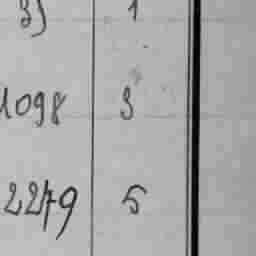 3) 1
1098 3
2279 5